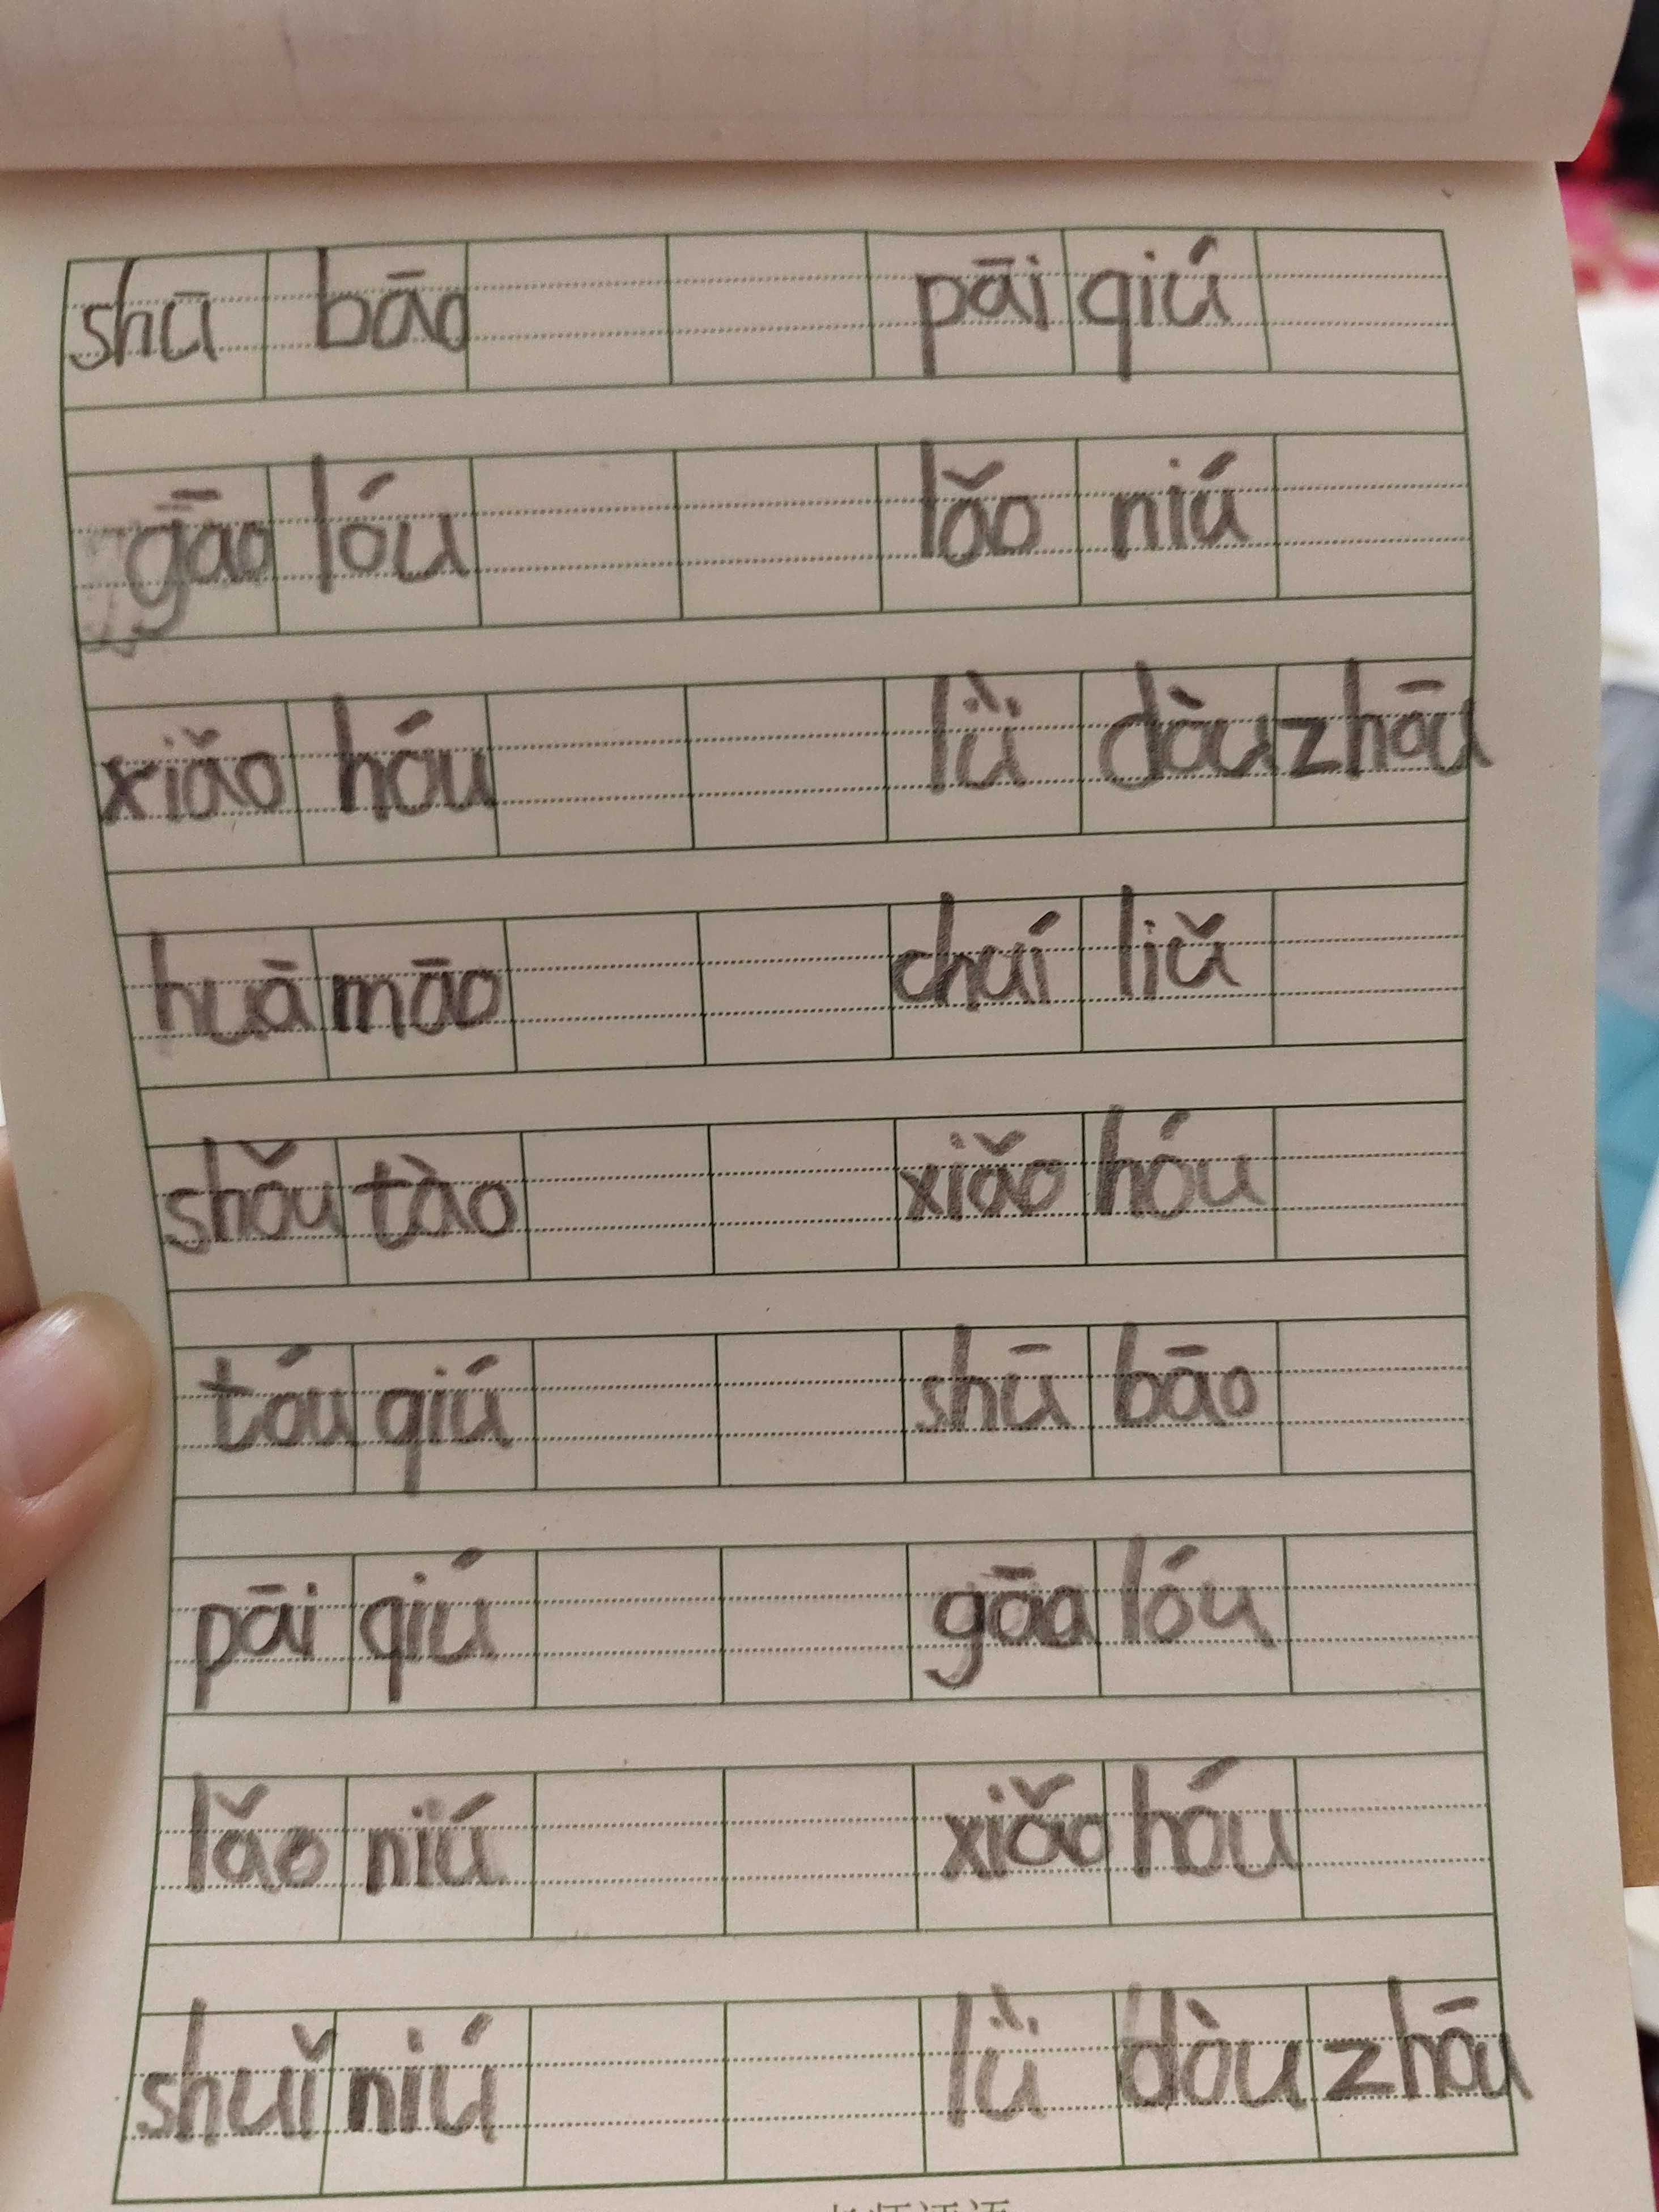 shū bāo pāi qiú
gāo lóu lǎo niú
xiǎo hóu lǜ dòu zhōu
huā māo chuí liǔ
shǒu tào xiǎo hóu
tóu qiú shū bāo
pāi qiú gāo lóu
lǎo niú xiǎo hóu
shuǐ niú lǜ dòu zhōu